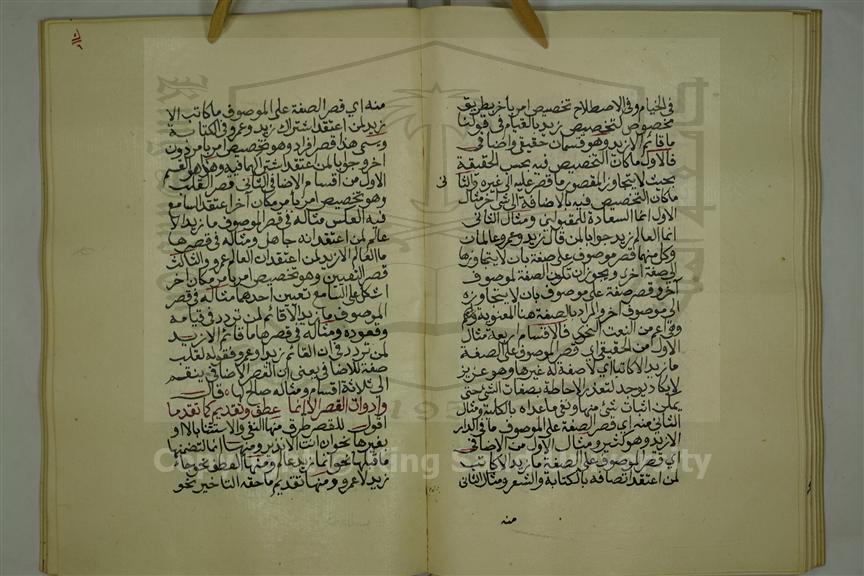 في الخيام وفي الاصطلاح تخصيص امر باخر بطريق
مخصوص كتخصيص زيد بالقيام في قولنا
ما قائم الا زيد وهو قسمان حقيقي واضافي
فالاول ما كان التخصيص فيه بحسب الحقيقة
بحيث لا يتجاوز المقصور ما قصر عليه الى غيره والثا
ني
ما كان التخصيص فيه بالاضافة الى شيء اخر مثال
الاول انما السعادة للمقبولين ومثال الثاني
انما العالم زيد جوابا لمن قال زيد وعمرو عالمان
وكل منهما قصر موصوف على صفة بان لا يتجاوزها
الى صفة اخرى ويجوز ان تكون الصفة لموصوف
آخر وقصر صفة على موصوف بان لا يتجاوزه
الى موصوف اخر والمراد بالصفة هنا المعنوية وهي
اعم من النعت النحوي فالاقسام اربعة مثال
الاول من الحقيقي اي قصر الموصوف على الصفة
ما زيد الا كاتبا اي لا صفة له غيرها وهو عزيز
لا يكاد يوجد لتعذر الاحاطة بصفات الشيء حتى
يمكن اثبات شيء منها ونفي ما عداه بالكلية ومثال
الثاني منه اي قصر الصفة على الموصوف ما في الدار
الا زيد وهو كثير ومثال الاول من الاضافي
اي قصر الموصوف على الصفة ما زيد الا كاتب
لمن اعتقد اتصافه بالكتابة والشعر ومثال الثاني
منه
منه اي قصر الصفة على الموصوف ما كاتب الا
زيد لمن اعتقد اشتراك زيد وعمرو في الكتابة
ويسمى هذا قصر افراد وهو تخصيص امر بامر دون
اخر جوابا لمن اعتقد اشتراكهما فيه وهذا هو القسم
الاول من اقسام الاضافي الثاني قصر القلب
وهو تخصيص امر بامر مكان آخر اعتقد السامع
فيه العكس مثاله في قصر الموصوف ما زيد الا
عالم لمن اعتقد انه جاهل ومثاله في قصرها
ما العالم الا زيد لمن اعتقد ان العالم عمرو والثالث
قصر التعيين وهو تخصيص امر بامر مكان اخر
اشكل على السامع تعيين احدهما مثاله في قصر
الموصوف ما زيد الا قائم لمن تردد في قيامه
وقعوده ومثاله في قصرها ما قائم الا زيد
لمن تردد في ان القائم زيد او عمرو فقوله لقلب
صفة للاضافي يعني ان القصر الاضافي ينقسم
الى ثلاثة اقسام ومثاله صالح لها قال
وادوات القصر الا انما عطف وتقديم كما تقدما
اقول للقصر طرق منها النفي والاستثناء بالا او
بغيرها نحو ان انت الا نذير ومنها انما لتضمنها
ما قبلها نحو انما زيد عالم ومنها العطف نحو جاءني
زيد لا عمرو ومنها تقديم ما حقه التاخير نحو
Copyright © King Saud University